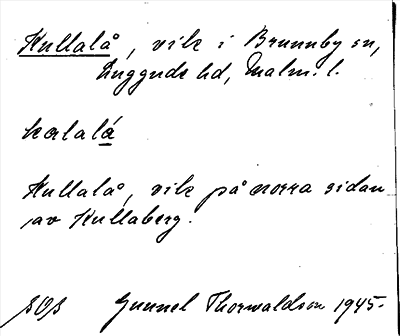 Kullalå, vik i Brunnby sn,
Luggude hd, Malm. l.
kolalá
Kullalå, vik på norra sidan
av Kullaberg.
Gunnel Thorwaldson 1945.